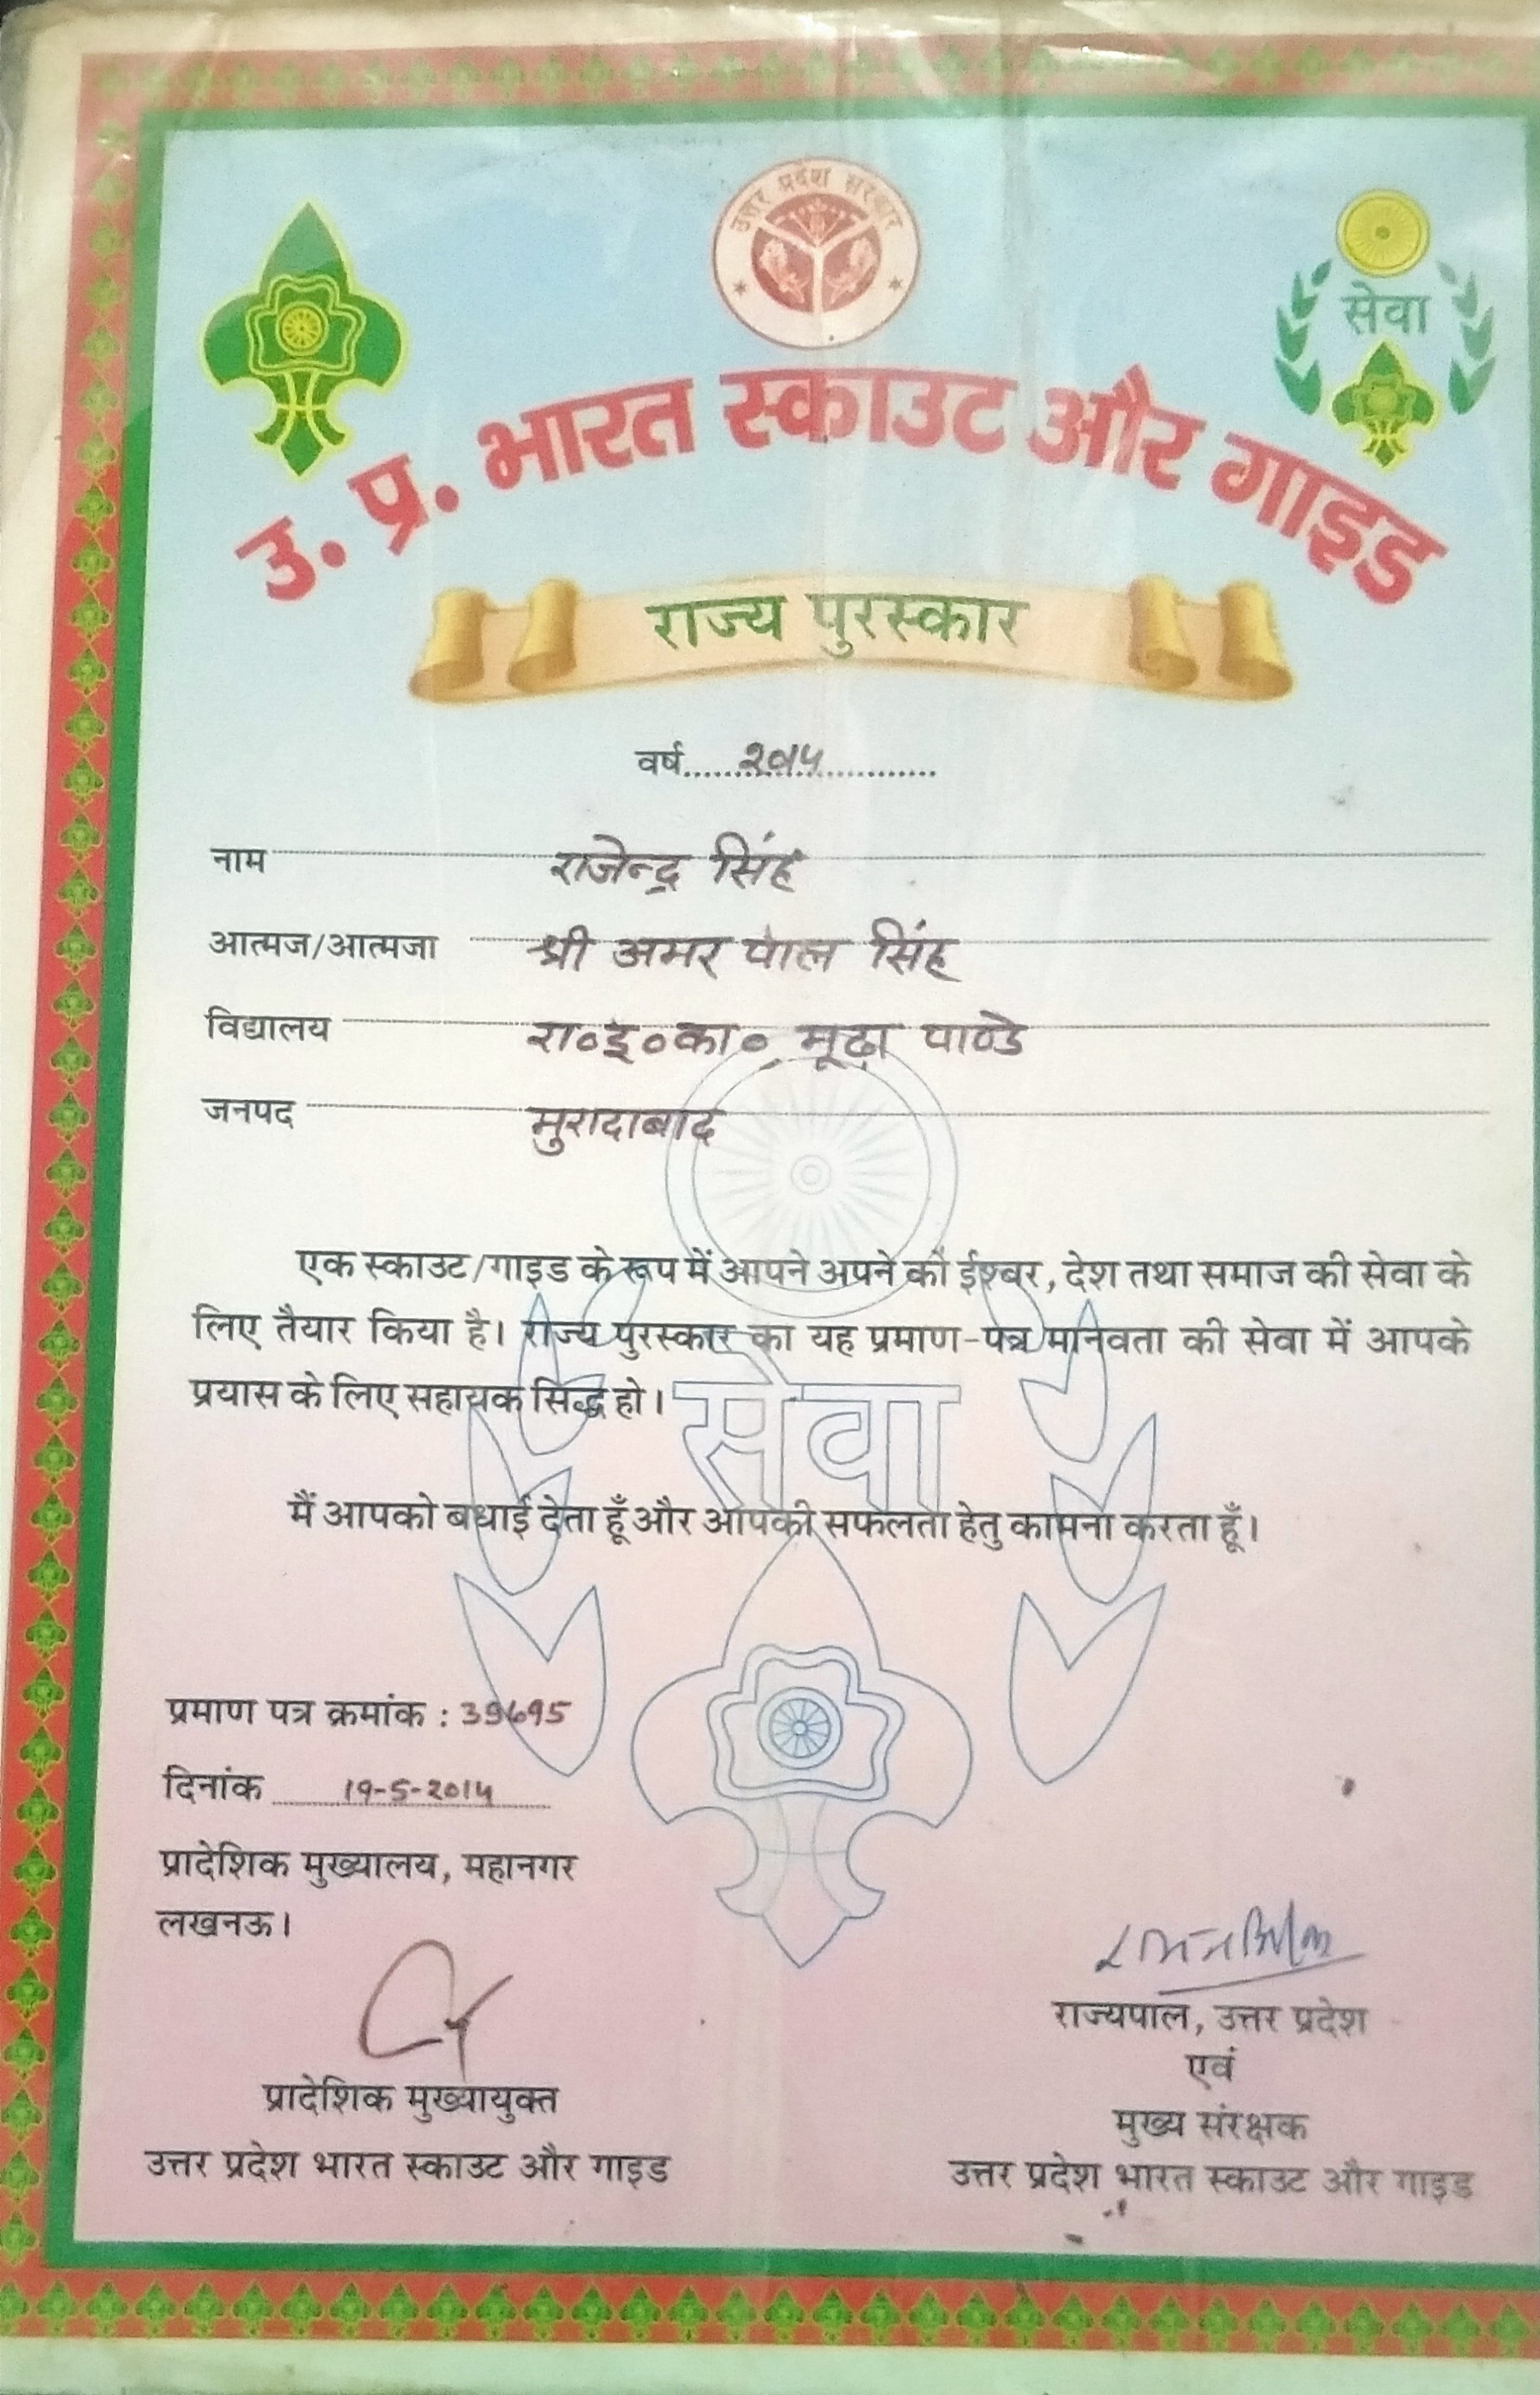 उत्तर प्रदेश सरकार
सेवा
उ. प्र. भारत स्काउट और गाइड
राज्य पुरस्कार
वर्ष.....२०१५..............
नाम राजेन्द्र सिंह
आत्मज/आत्मजा श्री अमर पाल सिंह
विद्यालय रा०इ०का० मूढ़ा पाण्डे
जनपद मुरादाबाद
एक स्काउट/गाइड के रूप में आपने अपने को ईश्वर, देश तथा समाज की सेवा के
लिए तैयार किया है। राज्य पुरस्कार का यह प्रमाण-पत्र मानवता की सेवा में आपके
प्रयास के लिए सहायक सिद्ध हो।
सेवा
मैं आपको बधाई देता हूँ और आपकी सफलता हेतु कामना करता हूँ।
प्रमाण पत्र क्रमांक : 39695
दिनांक 19-5-2014
प्रादेशिक मुख्यालय, महानगर
लखनऊ।
प्रादेशिक मुख्यायुक्त
उत्तर प्रदेश भारत स्काउट और गाइड
राज्यपाल, उत्तर प्रदेश
एवं
मुख्य संरक्षक
उत्तर प्रदेश भारत स्काउट और गाइड